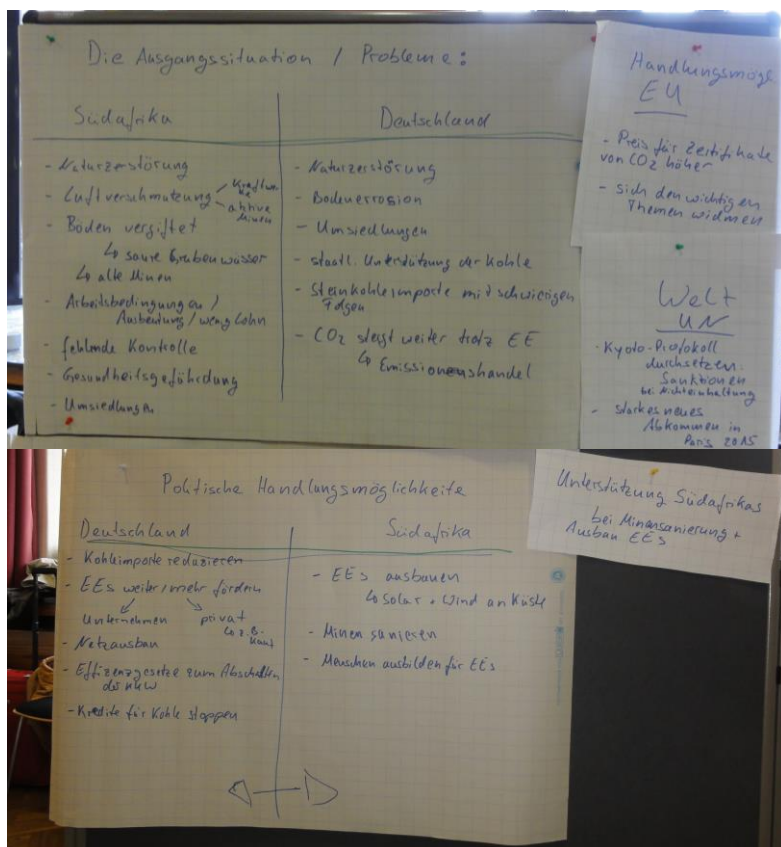 Die Ausgangssituation / Probleme:
Südafrika
- Naturzerstörung
- Luftverschmutzung
Kraftwerke
aktive
Minen
- Böden vergiftet
↳ saure Grubenwässer
↳ alte Minen
- Arbeitsbedingungen /
Ausbeutung / wenig Lohn
- fehlende Kontrolle
- Gesundheitsgefährdung
- Umsiedlungen
Deutschland
- Naturzerstörung
- Bodenerrosion
- Umsiedlungen
- staatl. Unterstützung der Kohle
- Steinkohleimporte mit schwierigen
Folgen
- CO2 steigt weiter trotz EE
↳ Emissionenshandel
Handlungsmögl
EU
- Preis für Zertifikate
von CO2 höher
- sich den wichtigen
Themen widmen
Welt
UN
- Kyoto-Protokoll
durchsetzen.
Sanktionen
bei Nichteinhaltung
- starkes neues
Abkommen in
Paris 2015
Politische Handlungsmöglichkeite
Deutschland
- Kohleimporte reduzieren
- EEs weiter/mehr fördern
Unternehmen
privat
↳ z.B.
- Netzausbau
- Effizenzgesetze zum Abschalten
der KKW
- Kredite für Kohle stoppen
Südafrika
- EEs ausbauen
↳ Solar + Wind an Küste
- Minen sanieren
- Menschen ausbilden für EEs
Unterstützung Südafrikas
bei Minensanierung +
Ausbau EEs